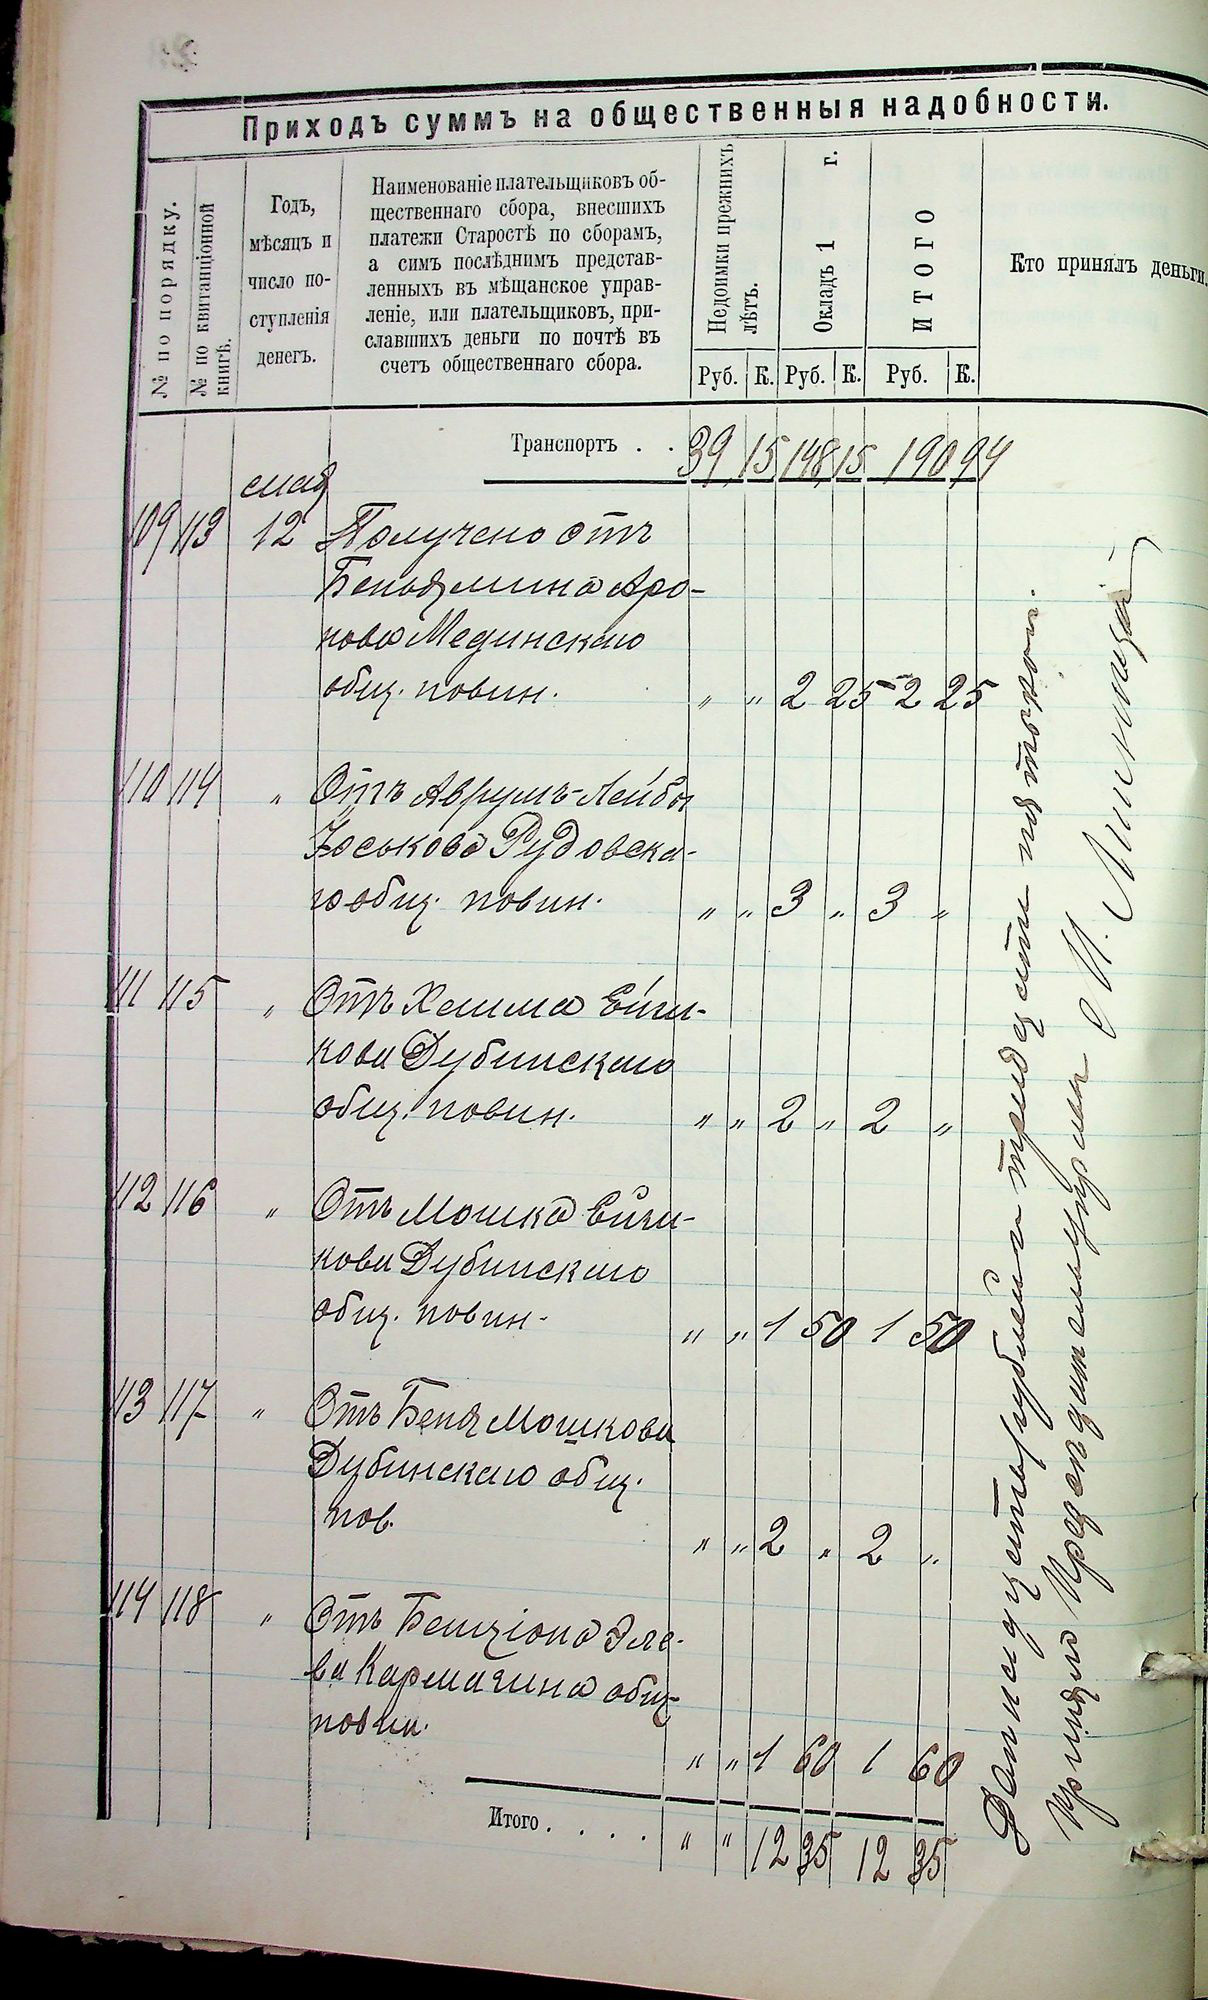 Приходъ суммъ на общественныя надобности.
№ по порядку.
№ по квитанціонной
книгѣ.
Годъ,
мѣсяцъ и
число по-
ступленія
денегъ.
Наименованіе плательщиковъ об-
щественнаго сбора, внесшихъ
платежи Старостѣ по сборамъ,
а симъ послѣднимъ представ-
ленныхъ въ мѣщанское управ-
леніе, или плательщиковъ, при-
славшихъ деньги по почтѣ въ
счетъ общественнаго сбора.
Недоимки прежнихъ
лѣтъ.
Окладъ 1 г.
ИТОГО
Кто принялъ деньги.
Руб. К. Руб. К. Руб. К.
Транспортъ . . 39 15 148 15 190 94
мая
109 113 12 Получено отъ
Беньямина Аро-
нова Мединскаго
общ. повин. " " 2 25 2 25
110 114 " Отъ Аврумъ-Лейбы
Юськова Рудовска-
го общ. повин. " " 3 " 3 "
111 115 " Отъ Хаима
кова Дубинскаго
общ. повин. " " 2 " 2 "
112 116 " Отъ Мошка
кова Дубинскаго
общ. повин. " " 1 50 1 50
113 117 " Отъ Беня Мошкова
Дубинскаго общ.
пов. " " 2 " 2 "
114 118 " Отъ Бенціона Эле-
ва Кармазина общ.
повин. " " 1 60 1 60
Итого . . . . " " 12 35 12 35
Двѣнадцать рублей тридцать пять коп.
принялъ Предсѣдатель управы